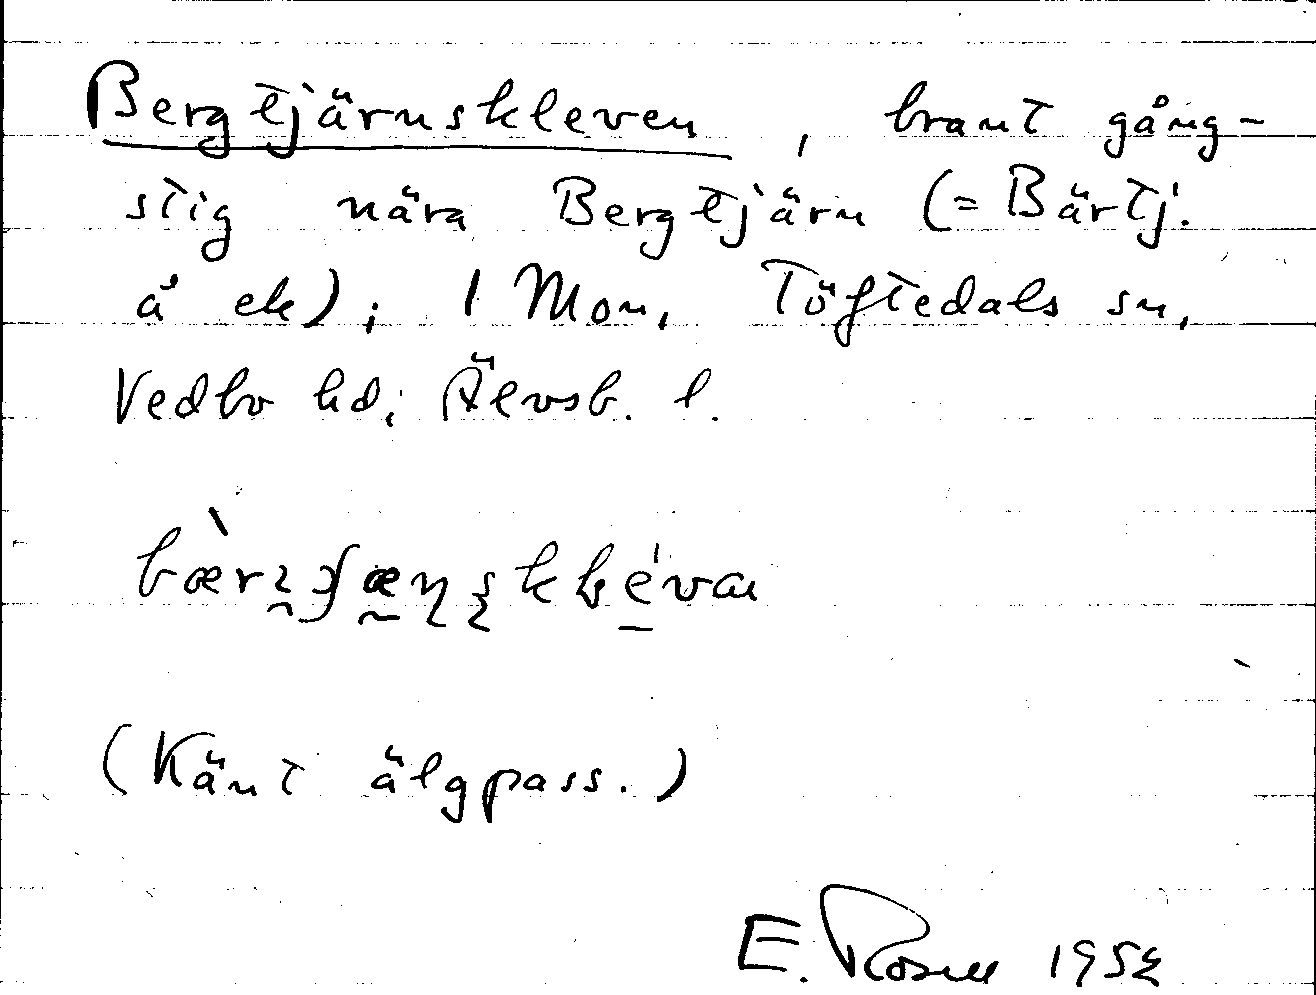 Bergtjärnskleven, brant gång-
stig nära Bergtjärn (=Bärtj.
å ek); 1 Mon, Töftedals sn,
Vedbo hd; Älvsb. l.
(Känt älgpass.)
E. Rosell